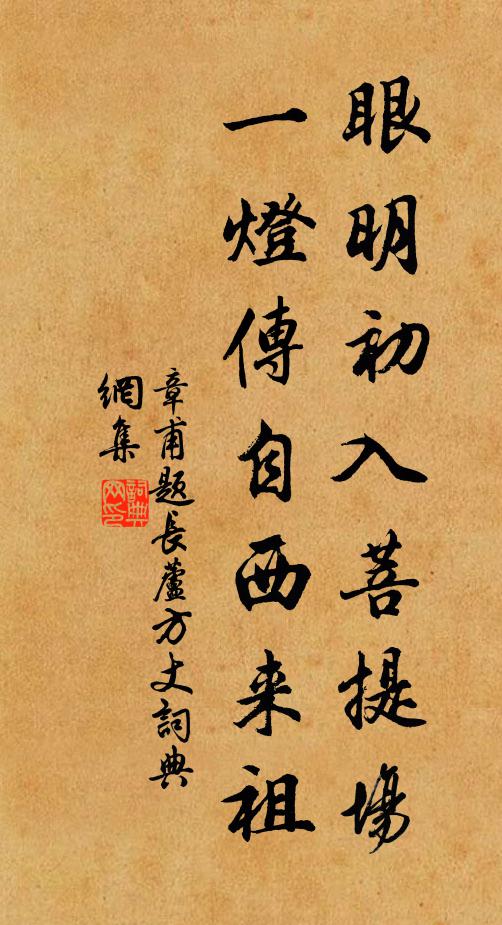 眼明初入菩提場
一燈傳自西来祖
章甫題長蘆方丈詞典
網集
詞典網印